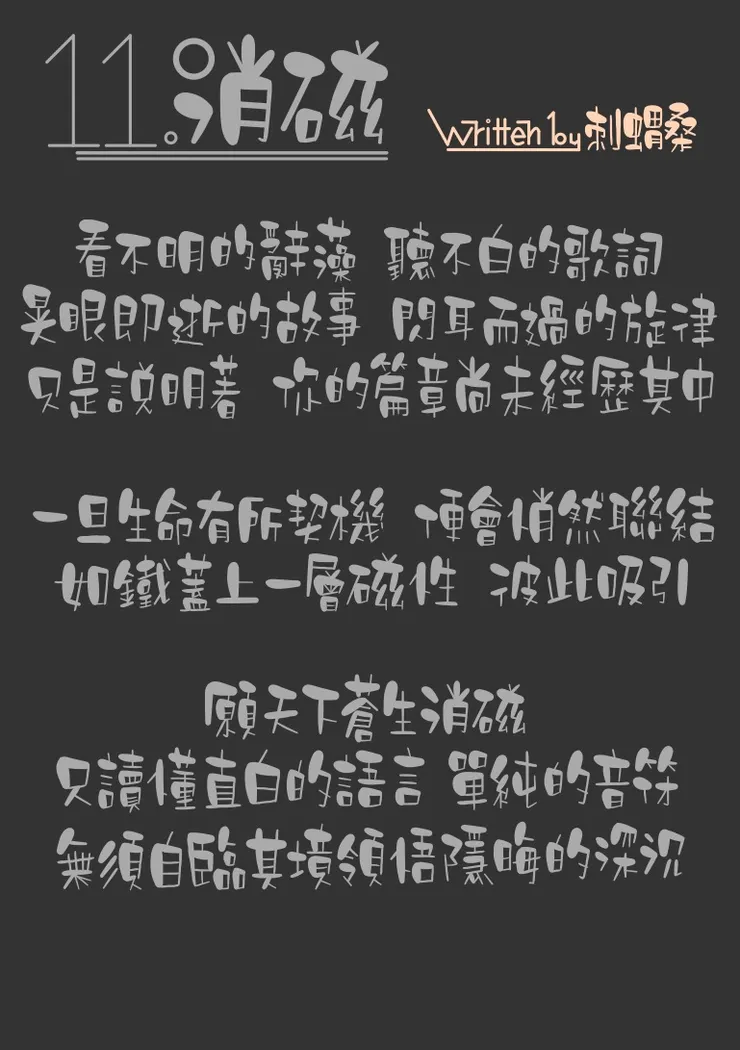 11.消磁
Written by 刺蝟桑
看不明的辭藻 聽不白的歌詞
晃眼即逝的故事 閃耳而過的旋律
只是說明著 你的篇章尚未經歷其中
一旦生命有所契機 便會悄然聯結
如鐵蓋上一層磁性 彼此吸引
願天下蒼生消磁
只讀懂直白的語言 單純的音符
無須自臨其境領悟隱晦的深沉